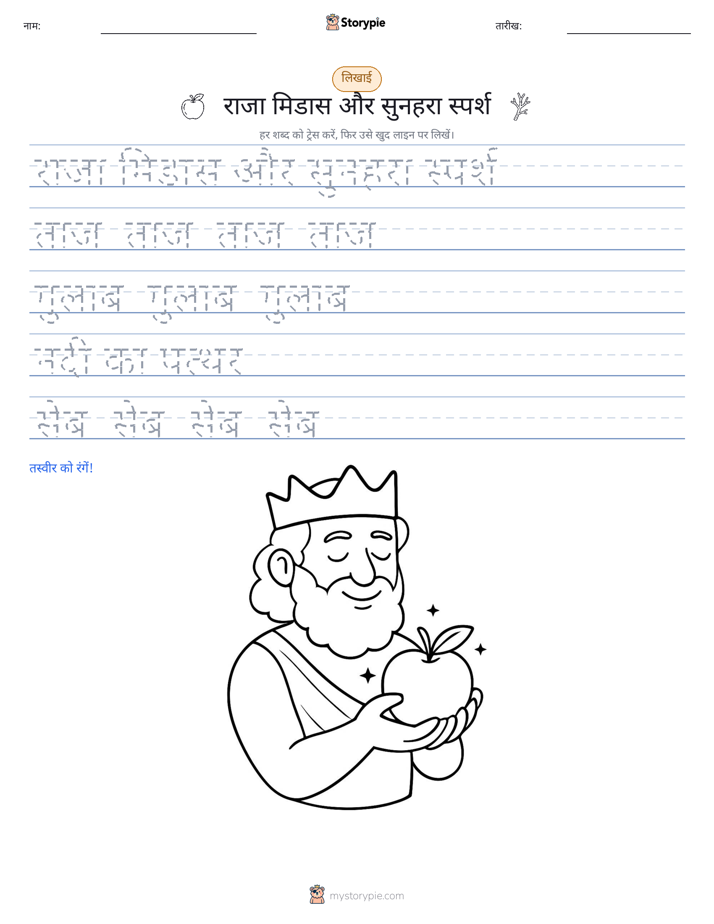 नाम:
Storypie
तारीख:
लिखाई
राजा मिडास और सुनहरा स्पर्श
हर शब्द को ट्रेस करें, फिर उसे खुद लाइन पर लिखें।
राजा मिडास और सुनहरा स्पर्श
ताज ताज ताज ताज
गुलाब गुलाब गुलाब
नदी का पत्थर
सेब सेब सेब सेब
तस्वीर को रंगें!
mystorypie.com